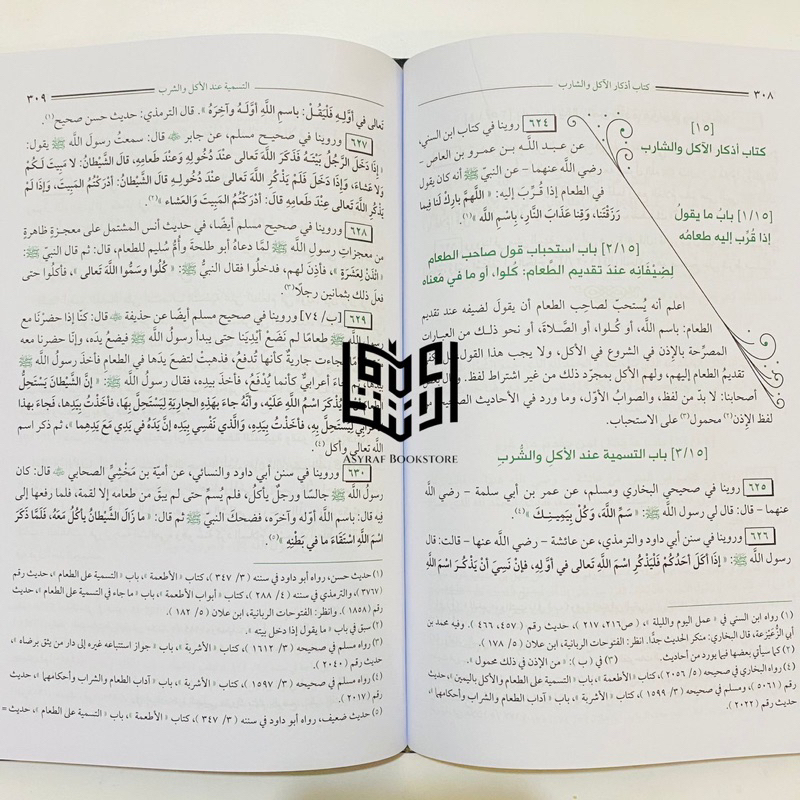 ٣٠٨
كتاب أذكار الآكل والشارب
[١٥]
كتاب أذكار الآكل والشارب
[١/١٥] بابُ ما يقولُ
إذا قُرِّب إليه طعامُه
٦٢٤ روينا في كتاب ابن السني،
عن عبد اللَّه بن عمرو بن العاص -
رضي اللَّه عنهما - عن النبيِّ ﷺ أنه كان يقول
في الطعام إذا قُرِّبَ إليه: « اللَّهمَّ بارِكْ لَنا فِيما
رَزَقْتَنا، وَقِنا عَذَابَ النَّارِ، بِاسْمِ اللَّه »(١).
[٢/١٥] باب استحباب قول صاحب الطعام
لِضِيْفَانِه عندَ تقديم الطَّعام: كُلوا، أو ما في مَعناه
اعلم أنه يُستحبّ لصاحِب الطعام أن يقولَ لضيفه عند تقديم
الطعام: باسم اللَّه، أو كُلوا، أو الصَّلاةَ، أو نحو ذلك من العبارات
المصرِّحة بالإِذن في الشروع في الأكل، ولا يجب هذا القول
تقديمُ الطعام إليهم، ولهم الأكل بمجرّد ذلك من غير اشتراط لفظ.
أصحابنا: لا بدّ من لفظ، والصوابُ الأوّل، وما ورد في الأحاديث
لفظ الإِذن(٢) محمول(٣) على الاستحباب.
[٣/١٥] باب التسمية عند الأكل والشُّرب
٦٢٥ روينا في صحيحي البخاري ومسلم، عن عمر بن أبي سلمة - رضي اللَّه
عنهما - قال: قال لي رسول اللَّه ﷺ: « سَمِّ اللَّهَ، وَكُلْ بِيَمِينِكَ »(٤).
٦٢٦ وروينا في سنن أبي داود والترمذي، عن عائشة - رضي اللَّه عنها - قالت: قال
رسول اللَّه ﷺ: « إذَا أكَلَ أحَدُكُمْ فَلْيَذْكُرِ اسْمَ اللَّهِ تَعالى في أوَّلِهِ، فإنْ نَسِيَ أنْ يَذْكُرَ اسْمَ اللَّهِ
(١) رواه ابن السني في « عمل اليوم والليلة »، ( ص٢١٦، ٢١٧ )، حديث رقم ( ٤٥٧، ٤٦٦ ). وفيه محمد بن
أبي الزُّعَيْزِعَة، قال البخاري: منكر الحديث جدًّا. انظر: الفتوحات الربانية، ابن علان ( ٥/ ١٧٨ ).
(٢) كما سيأتي بعضها فيما يورد من أحاديث. (٣) في ( ب ): « من الإذن في ذلك محمول ».
(٤) رواه البخاري في صحيحه ( ٥/ ٢٠٥٦ )، كتاب « الأطعمة »، باب « التسمية على الطعام والأكل باليمين »، حديث
رقم ( ٥٠٦١ )، ومسلم في صحيحه ( ٣/ ١٥٩٩ )، كتاب « الأشربة »، باب « آداب الطعام والشراب وأحكامهما »،
حديث رقم ( ٢٠٢٢ ).
التسمية عند الأكل والشرب
٣٠٩
تَعالى في أوَّلِهِ فَلْيَقُلْ: باسمِ اللَّهِ أوَّلَهُ وآخِرَهُ ». قال الترمذي: حديث حسن صحيح(١).
٦٢٧ وروينا في صحيح مسلم، عن جابر ﷺ قال: سمعتُ رسولَ اللَّه ﷺ يقول:
« إِذَا دَخَلَ الرَّجُلُ بَيْتَهُ فَذَكَرَ اللَّهَ تَعالى عِنْدَ دُخُولِهِ وَعِنْدَ طَعامِهِ، قالَ الشَّيْطانُ: لا مَبِيتَ لَكُمْ
وَلا عَشاءَ، وَإذَا دَخَلَ فَلَمْ يَذْكُرِ اللَّهَ تَعالى عِنْدَ دُخُولِهِ قالَ الشَّيْطانُ: أدْرَكْتُمُ المَبِيتَ، وَإذَا لَمْ
يَذْكُرِ اللَّهَ تَعالى عِنْدَ طَعامِهِ قالَ: أدْرَكْتُمُ المَبِيتَ وَالعَشاء »(٢).
٦٢٨ وروينا في صحيح مسلم أيضًا، في حديث أنس المشتمل على معجزةٍ ظاهرةٍ
من معجزات رسول اللَّه ﷺ لمَّا دعاه أبو طلحةَ وأُمُّ سُليم للطعام، قال: ثم قال النبيّ ﷺ:
« ائْذَنْ لِعَشَرَةٍ »، فأذِنَ لهم، فدخلُوا فقال النبيُّ ﷺ: « كُلُوا وسَمُّوا اللَّهَ تَعالى »، فأكلُوا حتى
فعلَ ذلك بثمانين رجلًا(٣).
٦٢٩ [ب/ ٧٤] وروينا في صحيح مسلم أيضًا عن حذيفة ﷺ قال: كنَّا إذا حضرْنا مع
رسولِ اللَّه ﷺ طعامًا لم نَضَعْ أيْدِيَنا حتى يبدأ رسولُ اللَّه ﷺ فيضعُ يدَه، وإنَّا حضرنا معه
جاءت جاريةٌ كأنها تُدفعُ، فذهبتْ لتضعَ يدَها في الطعامِ فأخذَ رسولُ اللَّه ﷺ
جاءَ أعرابيٌّ كأنما يُدْفَعُ، فأخذَ بيدِه، فقال رسول اللَّه ﷺ: « إنَّ الشَّيْطانَ يَسْتَحِلُّ
يُذْكَرَ اسْمُ اللَّهِ عَلَيْهِ، وأنَّهُ جاءَ بِهَذِهِ الجارِيَةِ لِيَسْتَحِلَّ بِهَا، فأخَذْتُ بِيَدِها، فَجاءَ بهذا
لِيَسْتَحِلَّ بِهِ، فأخَذْتُ بِيَدِهِ، وَالَّذِي نَفْسِي بِيَدِهِ إنَّ يَدَهُ في يَدِي مَعَ يَدِهِما »، ثم ذكر اسم
اللَّه تعالى وأكل(٤).
٦٣٠ وروينا في سنن أبي داود والنسائي، عن أميّة بن مَخْشِيٍّ الصحابي ﷺ قال: كان
رسولُ اللَّه ﷺ جالسًا ورجلٌ يأكلُ، فلم يُسمِّ حتى لم يبقَ من طعامه إلا لقمة، فلما رفعها إلى
فِيه قال: باسم اللَّه أوّله وآخرَه، فضحكَ النبيّ ﷺ ثم قال: « ما زَالَ الشَّيْطانُ يأكُلُ مَعَهُ، فَلَمَّا ذَكَرَ
اسْمَ اللَّهِ اسْتَقَاءَ ما في بَطْنِهِ »(٥).
(١) حديث حسن، رواه أبو داود في سننه ( ٣/ ٣٤٧ )، كتاب « الأطعمة »، باب « التسمية على الطعام »، حديث رقم
( ٣٧٦٧ )، والترمذي في سننه ( ٤/ ٢٨٨ )، كتاب « أبواب الأطعمة »، باب « ما جاء في التسمية على الطعام »، حديث
رقم ( ١٨٥٨ ). وانظر: الفتوحات الربانية، ابن علان ( ٥/ ١٨٢ ).
(٢) سبق في باب « ما يقول إذا دخل بيته ».
(٣) رواه مسلم في صحيحه ( ٣/ ١٦١٢ )، كتاب « الأشربة »، باب « جواز استتباعه غيره إلى دار من يثق برضاه »،
حديث رقم ( ٢٠٤٠ ).
(٤) رواه مسلم في صحيحه ( ٣/ ١٥٩٧ )، كتاب « الأشربة »، باب « آداب الطعام والشراب وأحكامهما »، حديث
رقم ( ٢٠١٧ ).
(٥) حديث ضعيف، رواه أبو داود في سننه ( ٣/ ٣٤٧ )، كتاب « الأطعمة »، باب « التسمية على الطعام »، حديث =
ASYRAF BOOKSTORE